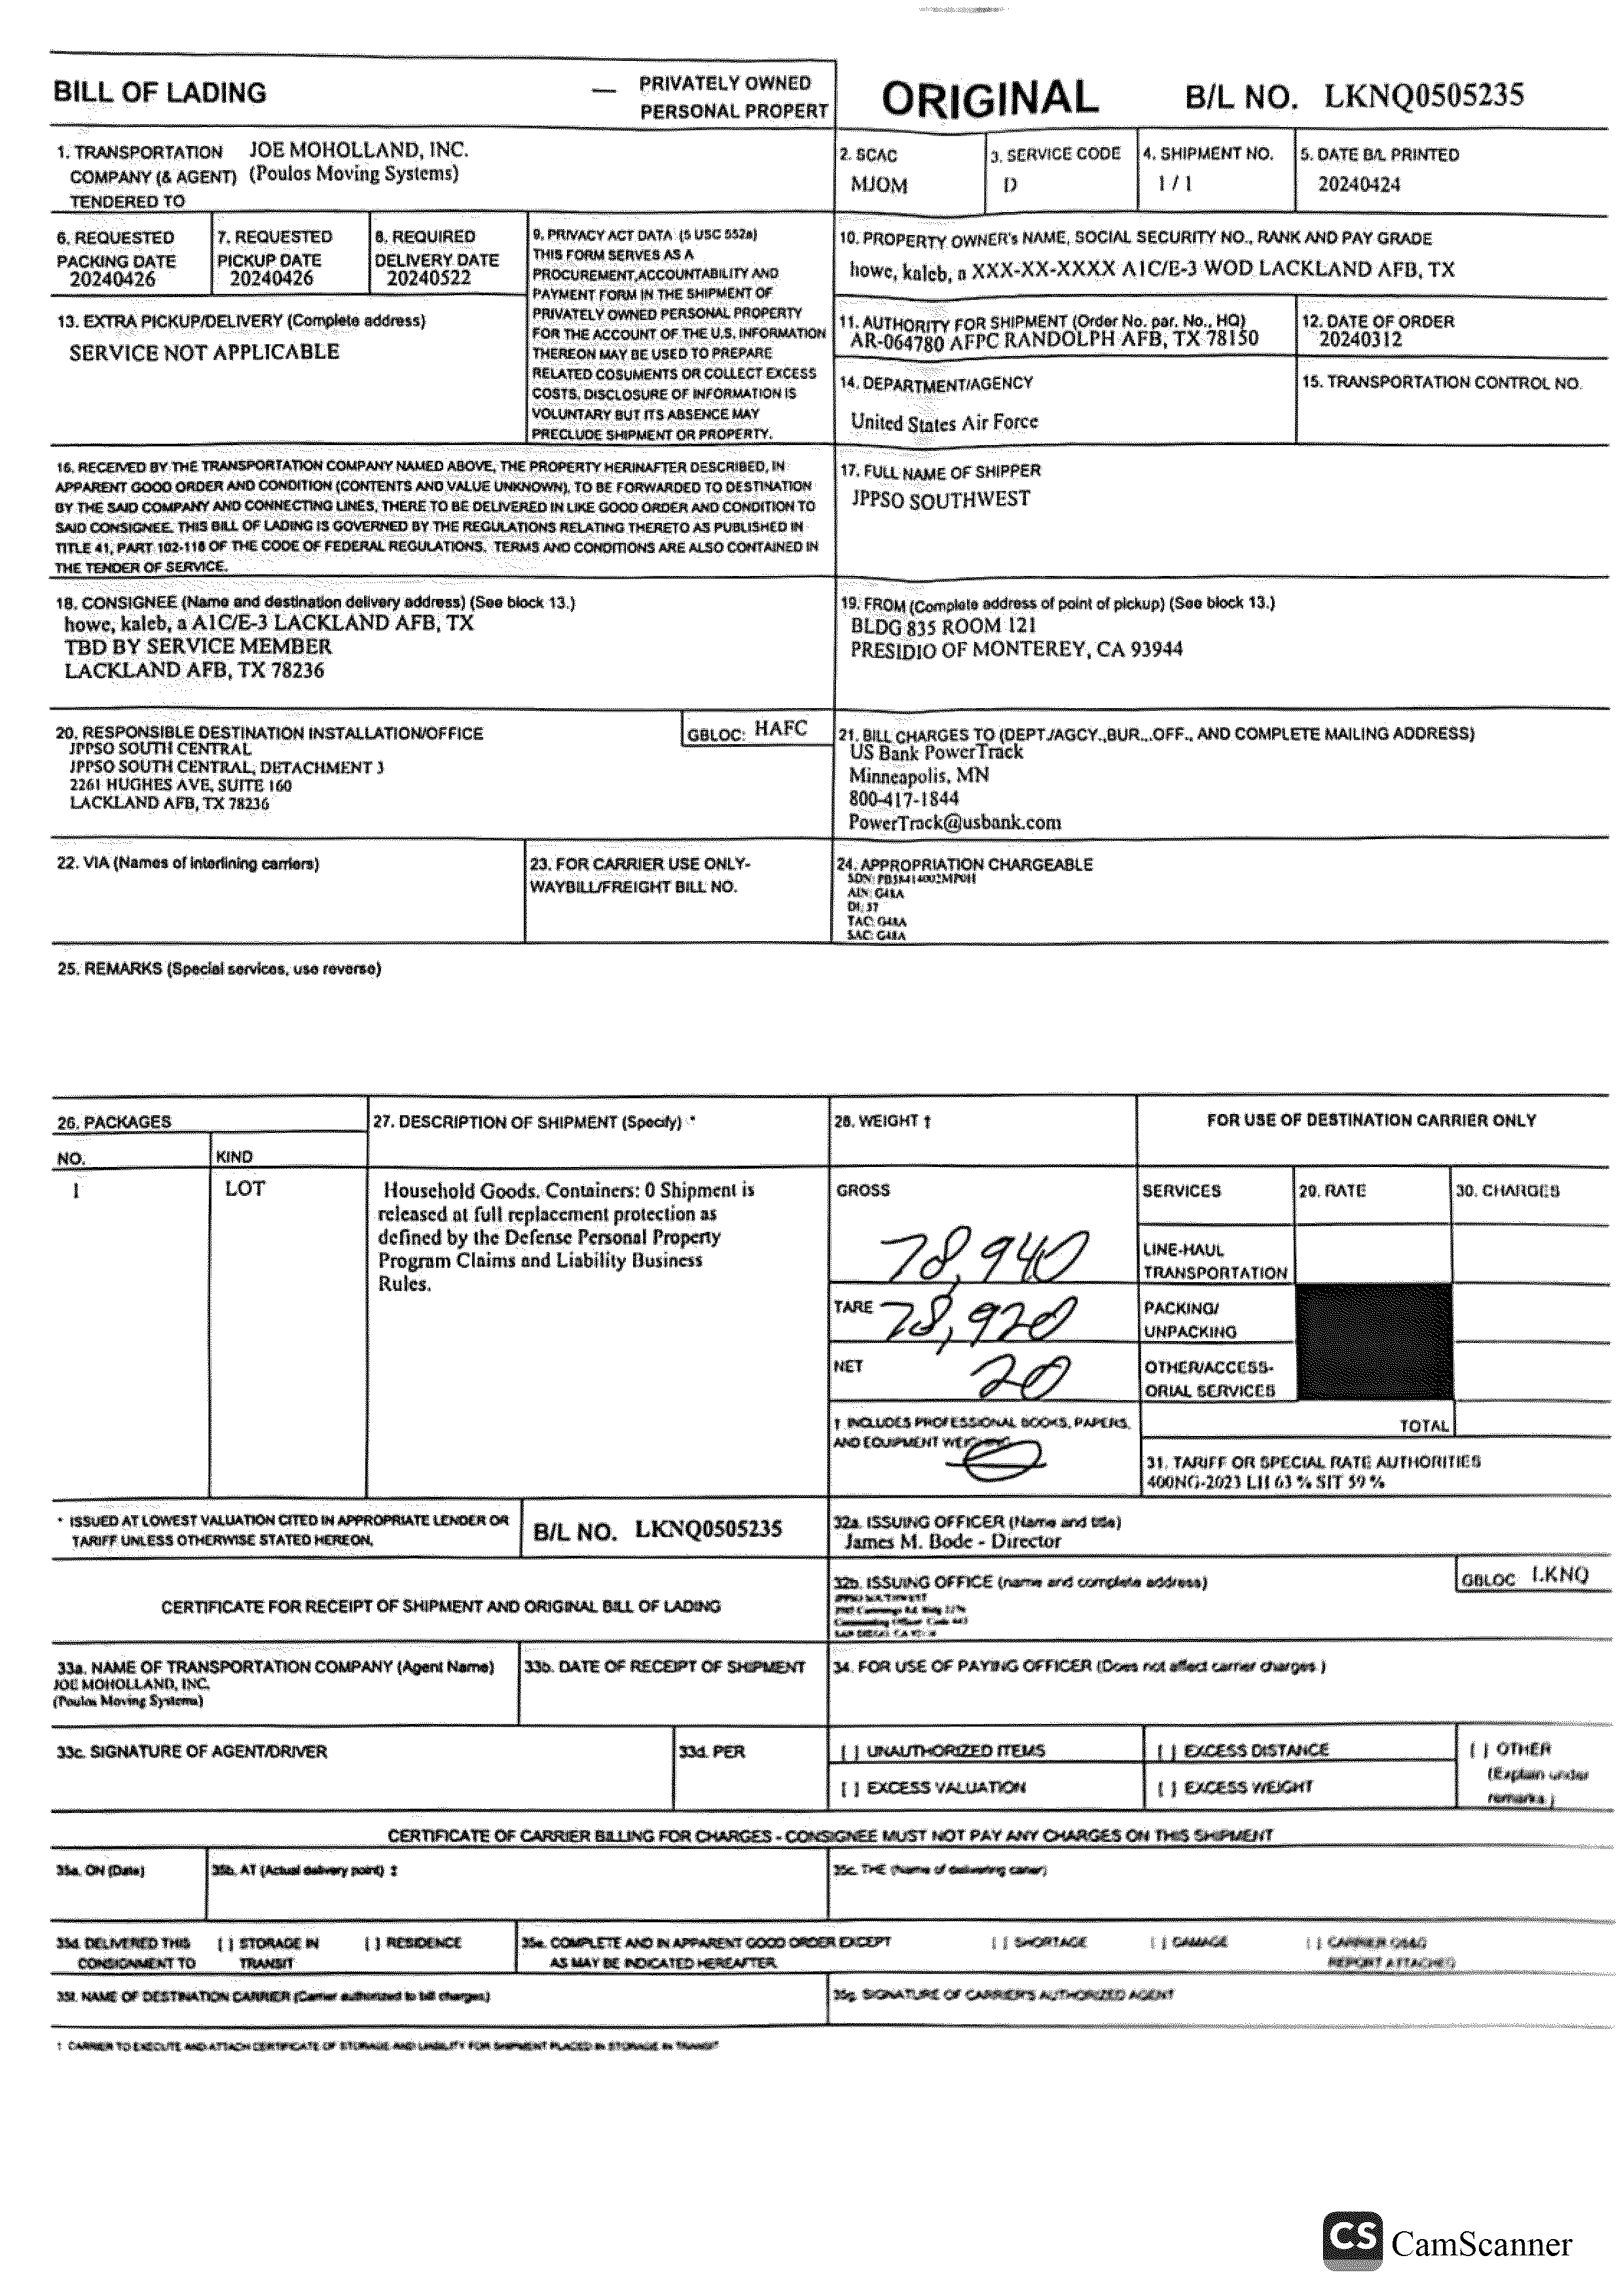 BILL OF LADING
— PRIVATELY OWNED
PERSONAL PROPERT
ORIGINAL
B/L NO. LKNQ0505235
1. TRANSPORTATION COMPANY (& AGENT) TENDERED TO
JOE MOHOLLAND, INC.
(Poulos Moving Systems)
2. SCAC
MJOM
3. SERVICE CODE
D
4. SHIPMENT NO.
1 / 1
5. DATE B/L PRINTED
20240424
6. REQUESTED
PACKING DATE
20240426
7. REQUESTED
PICKUP DATE
20240426
8. REQUIRED
DELIVERY DATE
20240522
9. PRIVACY ACT DATA (5 USC 552a)
THIS FORM SERVES AS A
PROCUREMENT,ACCOUNTABILITY AND
PAYMENT FORM IN THE SHIPMENT OF
PRIVATELY OWNED PERSONAL PROPERTY
FOR THE ACCOUNT OF THE U.S. INFORMATION
THEREON MAY BE USED TO PREPARE
RELATED COSUMENTS OR COLLECT EXCESS
COSTS, DISCLOSURE OF INFORMATION IS
VOLUNTARY BUT ITS ABSENCE MAY
PRECLUDE SHIPMENT OR PROPERTY.
10. PROPERTY OWNER's NAME, SOCIAL SECURITY NO., RANK AND PAY GRADE
howe, kaleb, a XXX-XX-XXXX A1C/E-3 WOD LACKLAND AFB, TX
11. AUTHORITY FOR SHIPMENT (Order No. par. No., HQ)
AR-064780 AFPC RANDOLPH AFB, TX 78150
12. DATE OF ORDER
20240312
13. EXTRA PICKUP/DELIVERY (Complete address)
SERVICE NOT APPLICABLE
14. DEPARTMENT/AGENCY
United States Air Force
15. TRANSPORTATION CONTROL NO.
16. RECEIVED BY THE TRANSPORTATION COMPANY NAMED ABOVE, THE PROPERTY HERINAFTER DESCRIBED, IN
APPARENT GOOD ORDER AND CONDITION (CONTENTS AND VALUE UNKNOWN), TO BE FORWARDED TO DESTINATION
BY THE SAID COMPANY AND CONNECTING LINES, THERE TO BE DELIVERED IN LIKE GOOD ORDER AND CONDITION TO
SAID CONSIGNEE. THIS BILL OF LADING IS GOVERNED BY THE REGULATIONS RELATING THERETO AS PUBLISHED IN
TITLE 41, PART 102-118 OF THE CODE OF FEDERAL REGULATIONS. TERMS AND CONDITIONS ARE ALSO CONTAINED IN
THE TENDER OF SERVICE.
17. FULL NAME OF SHIPPER
JPPSO SOUTHWEST
18. CONSIGNEE (Name and destination delivery address) (See block 13.)
howe, kaleb, a A1C/E-3 LACKLAND AFB, TX
TBD BY SERVICE MEMBER
LACKLAND AFB, TX 78236
19. FROM (Complete address of point of pickup) (See block 13.)
BLDG 835 ROOM 121
PRESIDIO OF MONTEREY, CA 93944
20. RESPONSIBLE DESTINATION INSTALLATION/OFFICE
GBLOC: HAFC
JPPSO SOUTH CENTRAL
JPPSO SOUTH CENTRAL, DETACHMENT 3
2261 HUGHES AVE, SUITE 160
LACKLAND AFB, TX 78236
21. BILL CHARGES TO (DEPT./AGCY.,BUR.,.OFF., AND COMPLETE MAILING ADDRESS)
US Bank PowerTrack
Minneapolis, MN
800-417-1844
PowerTrack@usbank.com
22. VIA (Names of interlining carriers)
23. FOR CARRIER USE ONLY-
WAYBILL/FREIGHT BILL NO.
24. APPROPRIATION CHARGEABLE
DI: 37
25. REMARKS (Special services, use reverse)
26. PACKAGES
NO.
KIND
27. DESCRIPTION OF SHIPMENT (Specify) *
28. WEIGHT †
FOR USE OF DESTINATION CARRIER ONLY
1
LOT
Household Goods. Containers: 0 Shipment is
released at full replacement protection as
defined by the Defense Personal Property
Program Claims and Liability Business
Rules.
GROSS
78,940
TARE
78,920
NET
20
† INCLUDES PROFESSIONAL BOOKS, PAPERS,
AND EQUIPMENT WEIGHING
SERVICES
29. RATE
30. CHARGES
LINE-HAUL
TRANSPORTATION
PACKING/
UNPACKING
OTHER/ACCESS-
ORIAL SERVICES
TOTAL
31. TARIFF OR SPECIAL RATE AUTHORITIES
400NG-2023 LH 63 % SIT 59 %
* ISSUED AT LOWEST VALUATION CITED IN APPROPRIATE LENDER OR
TARIFF UNLESS OTHERWISE STATED HEREON.
B/L NO. LKNQ0505235
32a. ISSUING OFFICER (Name and title)
James M. Bode - Director
CERTIFICATE FOR RECEIPT OF SHIPMENT AND ORIGINAL BILL OF LADING
32b. ISSUING OFFICE (name and complete address)
GBLOC LKNQ
33a. NAME OF TRANSPORTATION COMPANY (Agent Name)
JOE MOHOLLAND, INC.
(Poulos Moving Systems)
33b. DATE OF RECEIPT OF SHIPMENT
34. FOR USE OF PAYING OFFICER (Does not affect carrier charges )
33c. SIGNATURE OF AGENT/DRIVER
33d. PER
[ ] UNAUTHORIZED ITEMS
[ ] EXCESS DISTANCE
[ ] OTHER
(Explain under
remarks.)
[ ] EXCESS VALUATION
[ ] EXCESS WEIGHT
CERTIFICATE OF CARRIER BILLING FOR CHARGES - CONSIGNEE MUST NOT PAY ANY CHARGES ON THIS SHIPMENT
35a. ON (Date)
35b. AT (Actual delivery point) ‡
35c. THE (Name of delivering carier)
35d. DELIVERED THIS
CONSIGNMENT TO
[ ] STORAGE IN
TRANSIT
[ ] RESIDENCE
35e. COMPLETE AND IN APPARENT GOOD ORDER EXCEPT
AS MAY BE INDICATED HEREAFTER.
[ ] SHORTAGE
[ ] DAMAGE
[ ] CARRIER OS&D
REPORT ATTACHED
35f. NAME OF DESTINATION CARRIER (Carrier authorized to bill charges)
35g. SIGNATURE OF CARRIER'S AUTHORIZED AGENT
‡ CARRIER TO EXECUTE AND ATTACH CERTIFICATE OF STORAGE AND LIABILITY FOR SHIPMENT PLACED IN STORAGE IN TRANSIT
CS CamScanner